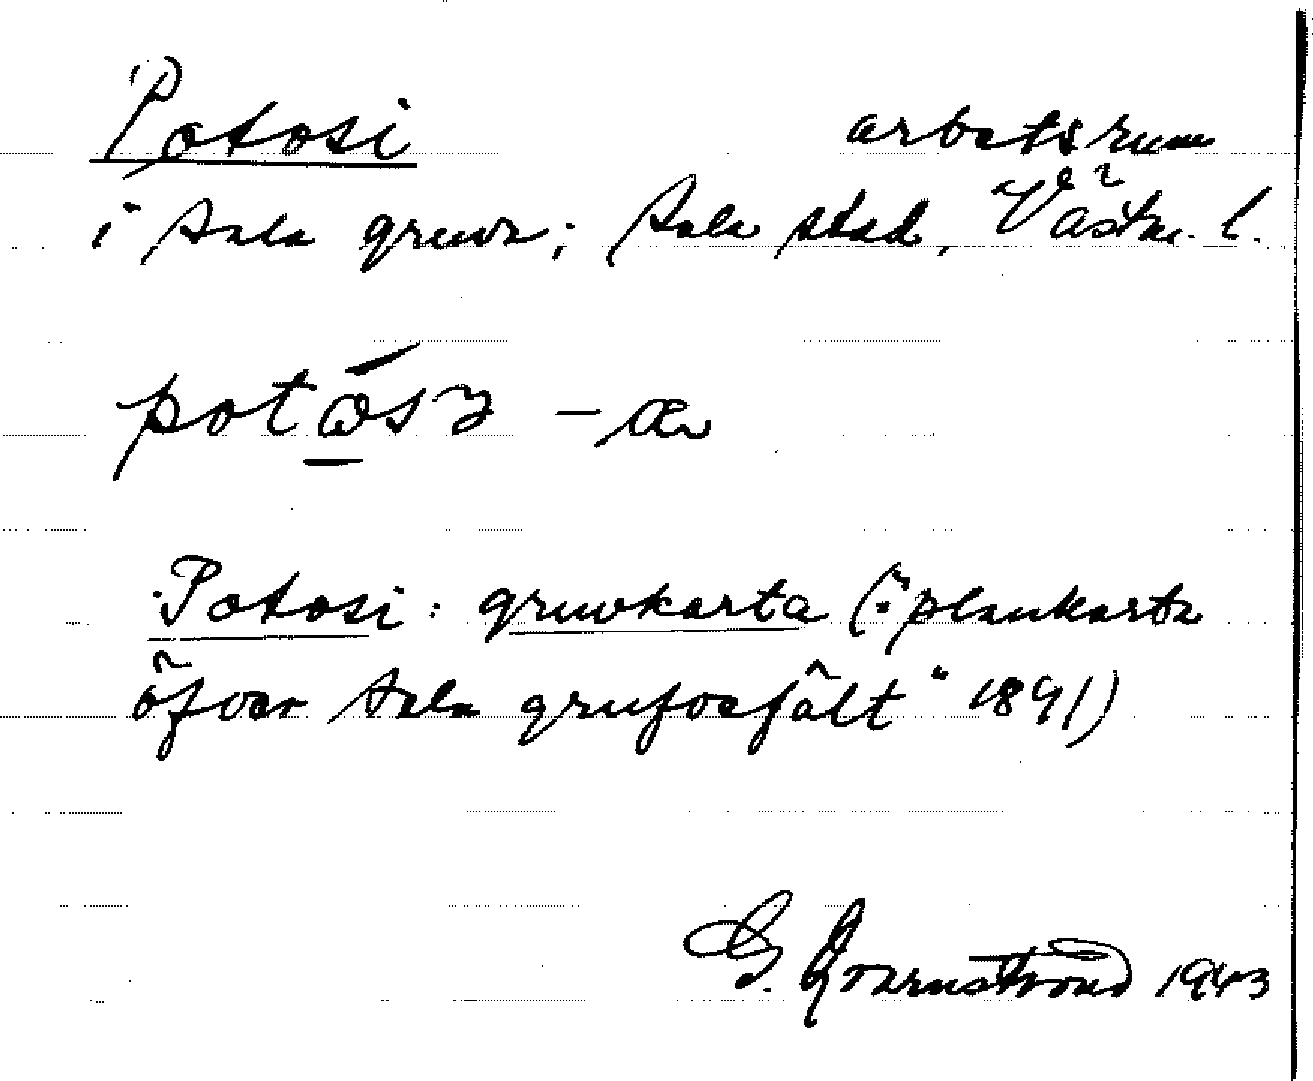 Potosi arbetsrum
i Sala gruva; Sala stad, Västm. l.
-æ
Potosi: gruvkarta ("plankarta
öfver Sala grufvefält" 1891)
G. 1943